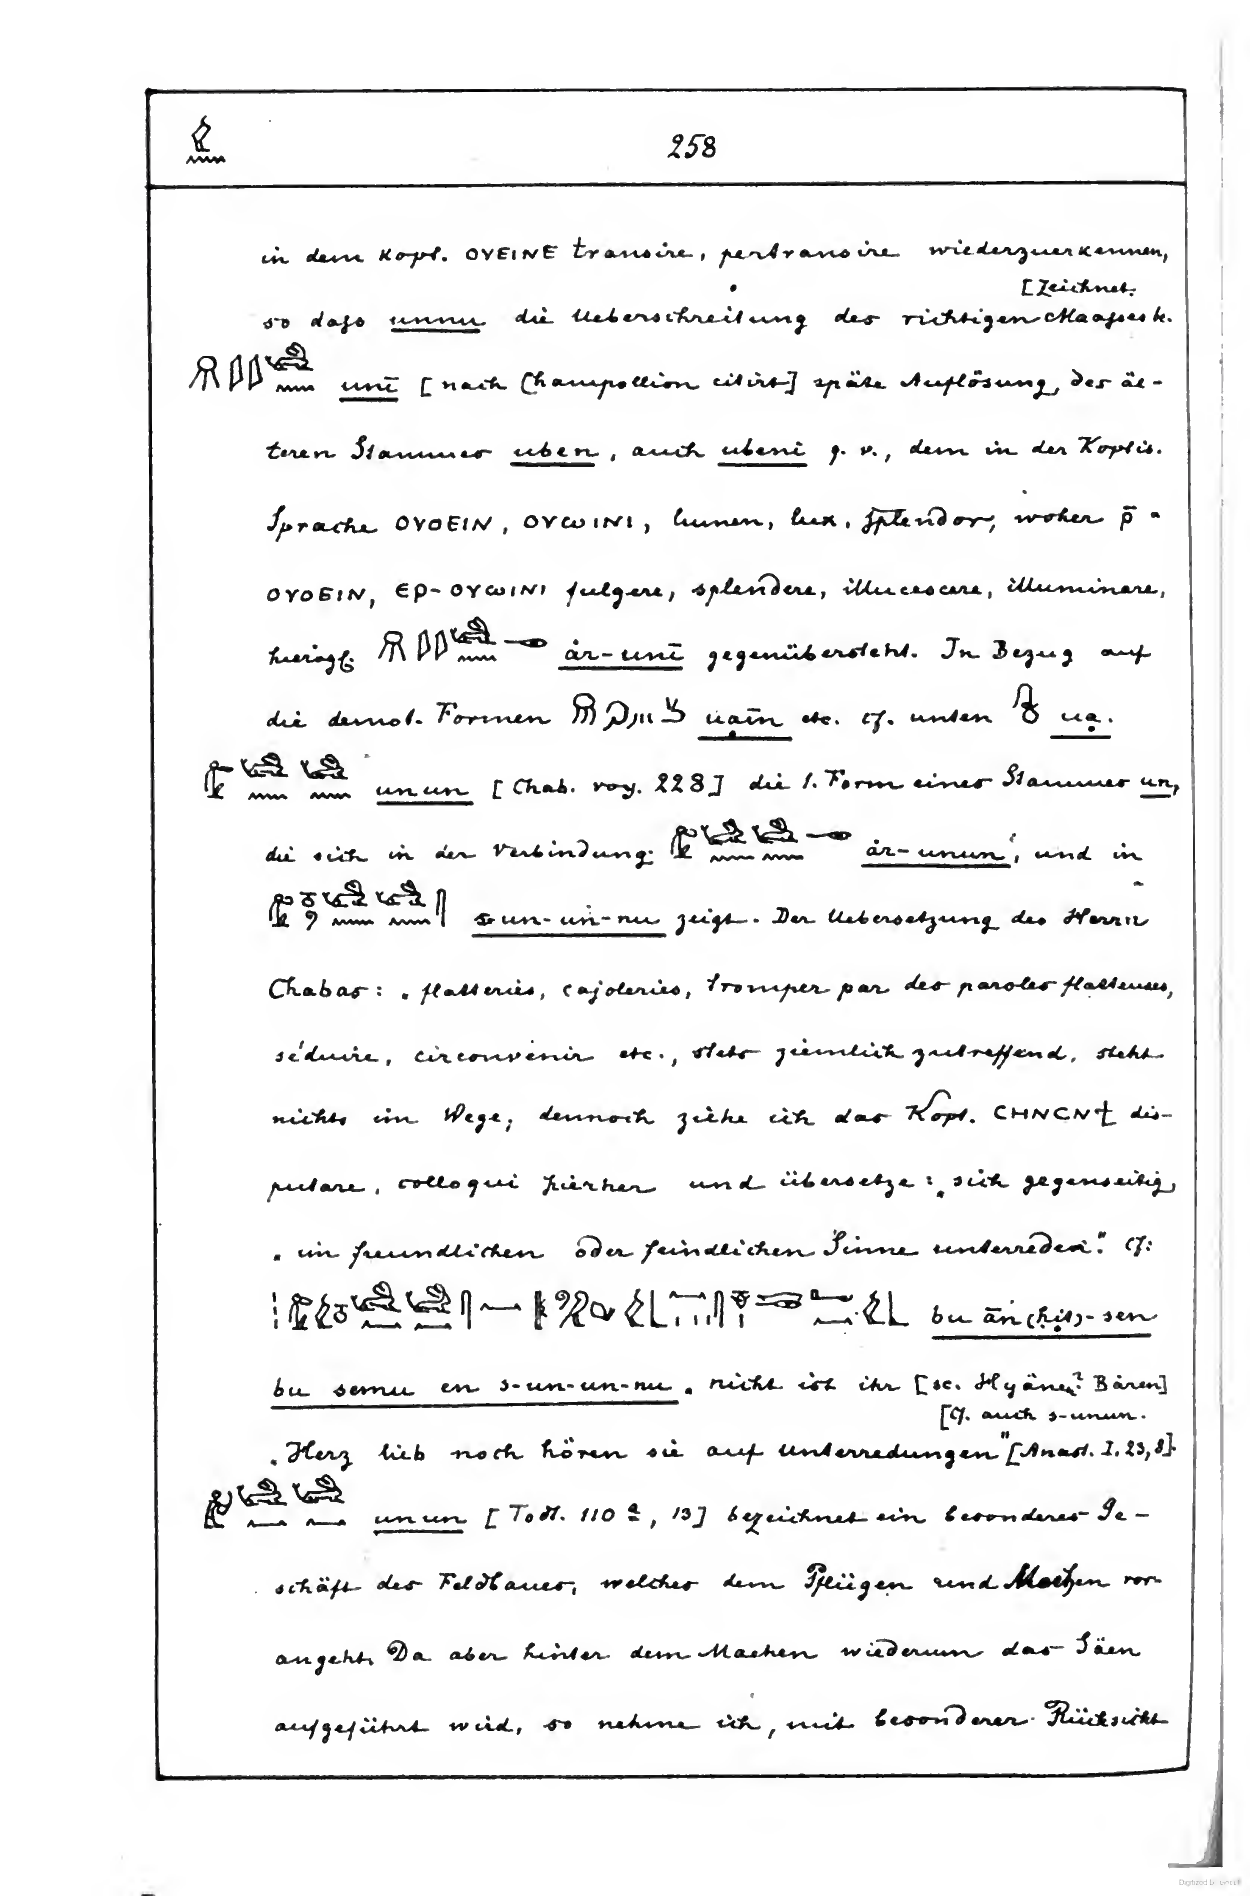 258
in dem Kopt. ΟΥΕΙΝΕ transire, pertransire wiederzuerkennen,
[zeichnet.
so daſs unnu die Ueberschreitung des richtigen Maaſses k.
unī [nach Champollion citirt] späte Auflösung, des äl-
teren Stammes uben, auch ubenī q. v., dem in der Koptis.
Sprache ΟΥΟΕΙΝ, ΟΥⲰΙΝΙ, lumen, lux, splendor, woher ⲣ̄-
ΟΥΟΕΙΝ, ⲈⲢ-ΟΥⲰΙΝΙ fulgere, splendere, illucescere, illuminare,
hierogl. år-unī gegenübersteht. In Bezug auf
die demot. Formen etc. cf. unten uạ.
unun [Chab. voy. 228] die 1. Form eines Stammes un,
die sich in der Verbindung: år-unun, und in
s-un-un-nu zeigt. Der Uebersetzung des Herrn
Chabas: „flatteries, cajoleries, tromper par des paroles flatteuses,
séduire, circonvenir etc., stets ziemlich zutreffend, steht
nichts im Wege; dennoch ziehe ich das Kopt. ⲤⲎⲚⲤⲚϮ dis-
putare, colloqui hierher und übersetze: „sich gegenseitig,
„im freundlichen oder feindlichen Sinne unterreden." cf:
bu ān (ḥit)-sen
bu semu en s-un-un-nu „nicht ist ihr [sc. Hyänen? Bären]
[Cf. auch s-unun.
„Herz lieb noch hören sie auf Unterredungen" [Anast. I. 23, 8].
unun [Todt. 110 a, 13] bezeichnet ein besonderes Ge-
schäft des Feldbaues, welches dem Pflügen und Machen vor-
angeht. Da aber hinter dem Machen wiederum das Säen
aufgeführt wird, so nehme ich, mit besonderer Rücksicht